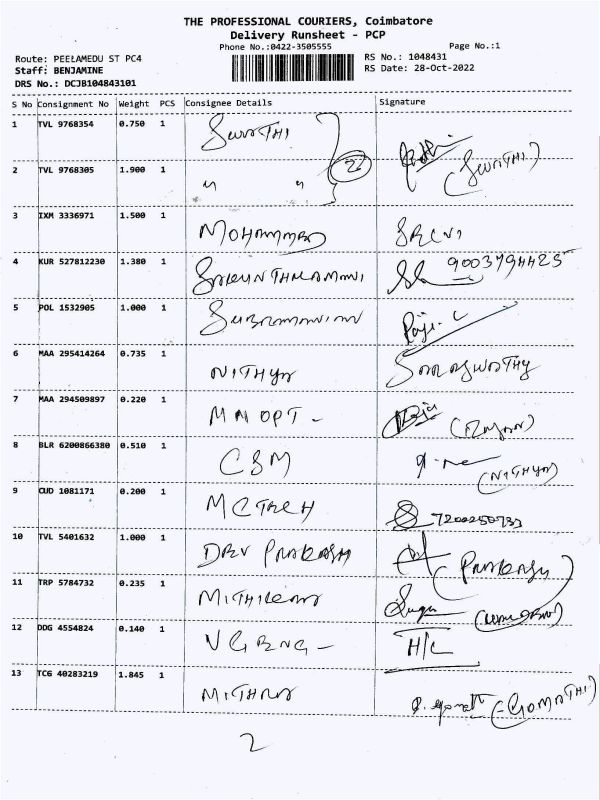 THE PROFESSIONAL COURIERS, Coimbatore
Delivery Runsheet - PCP
Phone No.:0422-3505555 Page No.:1
Route: PEELAMEDU ST PC4 RS No.: 1048431
Staff: BENJAMINE RS Date: 28-Oct-2022
DRS No.: DCJB104843101
S No Consignment No Weight PCS Consignee Details Signature
1 TVL 9768354 0.750 1 SWATHI
2 TVL 9768305 1.900 1 " " (SWATHI)
3 IXM 3336971 1.500 1 MOHAMMED SELVI
4 KUR 527812230 1.380 1 9003794425
5 POL 1532905 1.000 1 SUBRAMANIAN Raji. C
6 MAA 295414264 0.735 1 NITHYA SARASWATHY
7 MAA 294509897 0.220 1 MN OPT -
8 BLR 6200866380 0.510 1 CSM (NITHYA)
9 CUD 1081171 0.200 1 MCTECH 7200250733
10 TVL 5401632 1.000 1 DEV PRAKASH (PRAKASH)
11 TRP 5784732 0.235 1
12 DDG 4554824 0.140 1 H/C
13 TCG 40283219 1.845 1 MITHRA (GOMATHI)
2